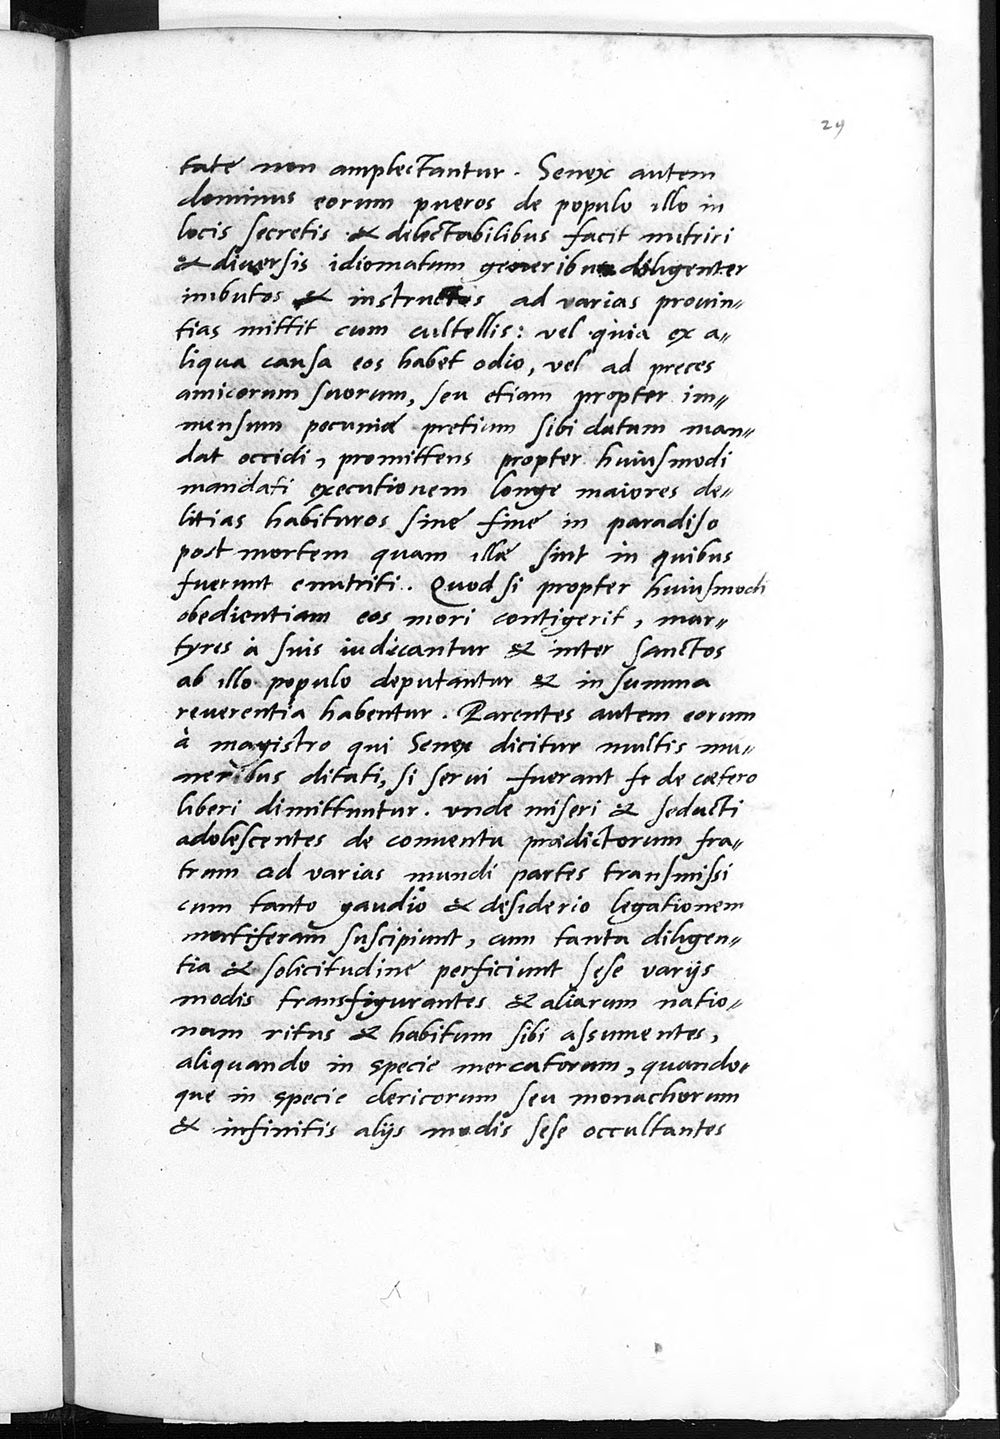 24
tate non amplectantur. Senex autem
dominus eorum pueros de populo illo in
locis secretis & delectabilibus facit nutriri
& diuersis idiomatum generibus diligenter
imbutos & instructos ad varias prouin〃
tias mittit cum cultellis: vel quia ex a〃
liqua causa eos habet odio, vel ad preces
amicorum suorum, seu etiam propter im〃
mensum pecuniæ pretium sibi datum man〃
dat occidi, promittens propter huiusmodi
mandati executionem longe maiores de〃
litias habituros sine fine in paradiso
post mortem quam illæ sint in quibus
fuerunt enutriti. Quod si propter huiusmodi
obedientiam eos mori contigerit, mar〃
tyres à suis iudicantur & inter sanctos
ab illo populo deputantur & in summa
reuerentia habentur. Parentes autem eorum
à magistro qui Senex dicitur multis mu〃
neribus ditati, si serui fuerant de cætero
liberi dimittuntur. vnde miseri & seducti
adolescentes de conuentu prædictorum fra〃
trum ad varias mundi partes transmissi
cum tanto gaudio & desiderio legationem
mortiferam suscipiunt, cum tanta diligen〃
tia & solicitudine perficiunt sese varijs
modis transfigurantes & aliarum natio〃
num ritus & habitum sibi assumentes,
aliquando in specie mercatorum, quando〃
que in specie clericorum seu monachorum
& infinitis alijs modis sese occultantes